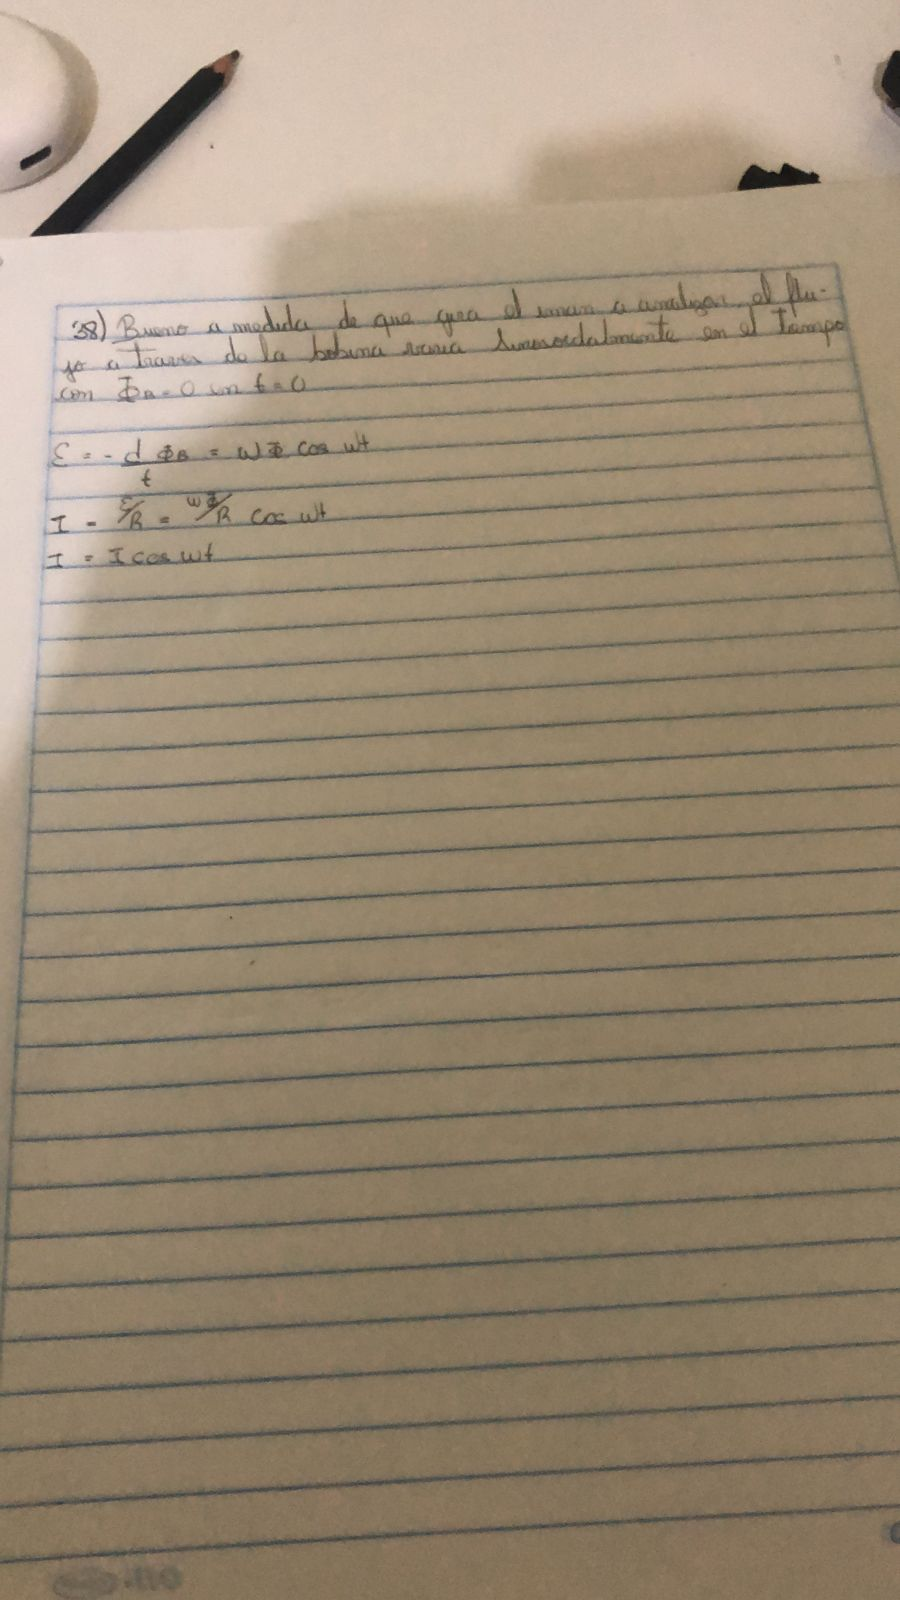 38) Bueno a medida de que gira el iman a analizar, el flu-
jo a traves de la bobina varia sinusoidalmente en el tiempo
con Φ_B = 0 en t = 0
ε = - d/t Φ_B = ωΦ cos ωt
I = ε/R = ωΦ/R cos ωt
I = I cos ωt